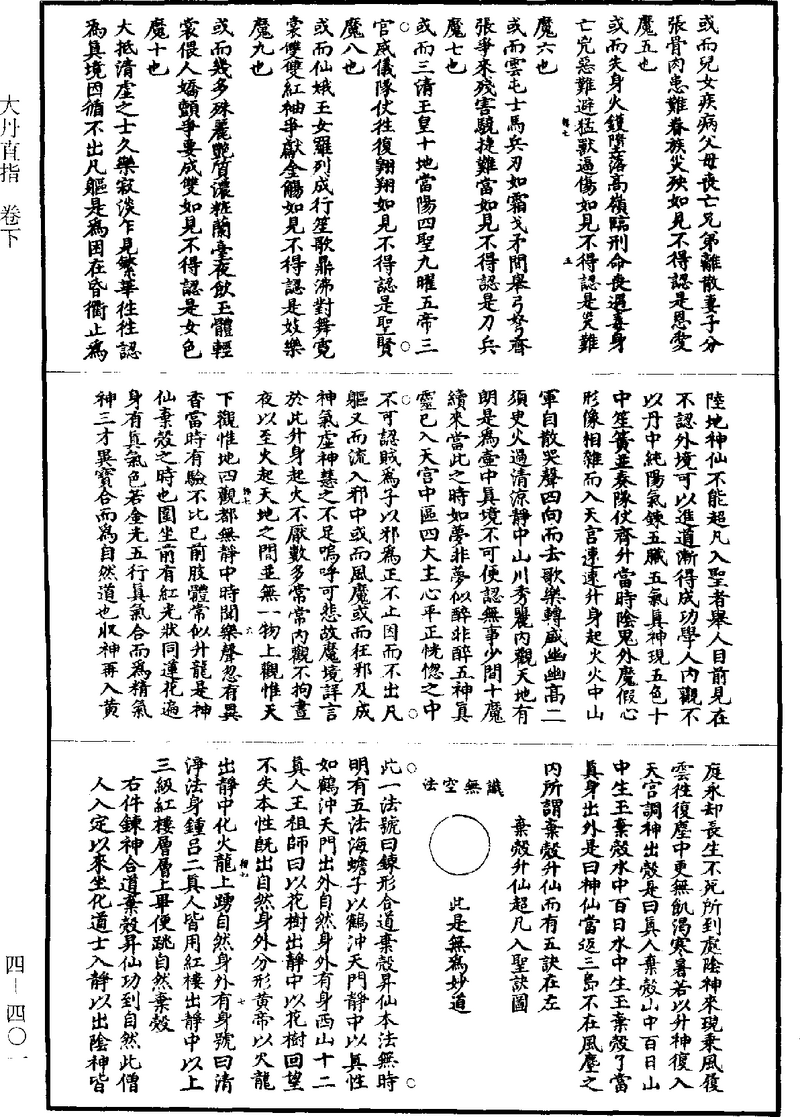 大丹直指 卷下
或而兒女疾病父母喪亡兄弟離散妻子分
張骨肉患難眷族災殃如見不得認是恩愛
魔五也
或而失身火鑊墮落高嶺臨刑命喪遇毒身
亡兇惡難避猛獸逼傷如見不得認是災難
魔六也
或而雲屯士馬兵刃如霜戈矛間舉弓弩齊
張爭來殘害驍捷難當如見不得認是刀兵
魔七也
或而三清玉皇十地當陽四聖九曜五帝三
官威儀隊仗往復翱翔如見不得認是聖賢
魔八也
或而仙娥玉女羅列成行笙歌鼎沸對舞霓
裳雙雙紅袖爭獻金觴如見不得認是妓樂
魔九也
或而幾多殊麗艷質濃粧蘭臺夜飲玉體輕
裳偎人嬌顫爭要成雙如見不得認是女色
魔十也
大抵清虛之士久樂寂淡乍見繁華往往認
爲真境因循不出凡軀是爲困在昏衢止爲
陸地神仙不能超凡入聖者舉人目前見在
不認外境可以進道漸得成功學人內觀不
以丹中純陽氣鍊五臟五氣真神現五色十
中笙簧並奏隊仗齊升當時陰鬼外魔假心
形像相雜而入天宫速速升身起火火中山
軍自散哭聲四向而去歌樂轉盛幽幽高二
須臾火過清涼靜中山川秀麗內觀天地有
朗是爲壺中真境不可便認無事少間十魔
續來當此之時如夢非夢似醉非醉五神真
靈已入天宫中區四大主心平正恍惚之中
不可認賊爲子以邪爲正不止因而不出凡
軀又而流入邪中或而風魔或而狂邪及成
神氣虛神慧之不足嗚呼可悲故魔境詳言
於此升身起火不厭數多常常內觀不拘晝
夜以至火起天地之間並無一物上觀惟天
下觀惟地四觀都無靜中時聞樂聲忽有異
香當時有驗不比已前肢體常似升龍是神
仙棄殼之時也圜坐前有紅光狀同蓮花遍
身有真氣色若金光五行真氣合而爲精氣
神三才異寶合而爲自然道也收神再入黃
庭永却長生不死所到處陰神來現乘風復
雲往復塵中更無飢渴寒暑若以升神復入
天宫調神出殼是曰真人棄殼山中百日山
中生玉棄殼水中百日水中生玉棄殼了當
真身出外是曰神仙當返三島不在風塵之
內所謂棄殼升仙而有五訣在左
棄殼升仙超凡入聖訣圖
識無空法
此是無爲妙道
此一法號曰鍊形合道棄殼昇仙本法無時
明有五法海蟾子以鶴沖天門靜中以真性
如鶴沖天門出外自然身外有身西山十二
真人王祖師曰以花樹出靜中以花樹回望
不失本性旣出自然身外分形黃帝以火龍
出靜中化火龍上踴自然身外有身號曰清
淨法身鍾呂二真人皆用紅樓出靜中以上
三級紅樓層層上畢便跳自然棄殼
右件鍊神合道棄殼昇仙功到自然此僧
人入定以來坐化道士入靜以出陰神皆
四—四〇一